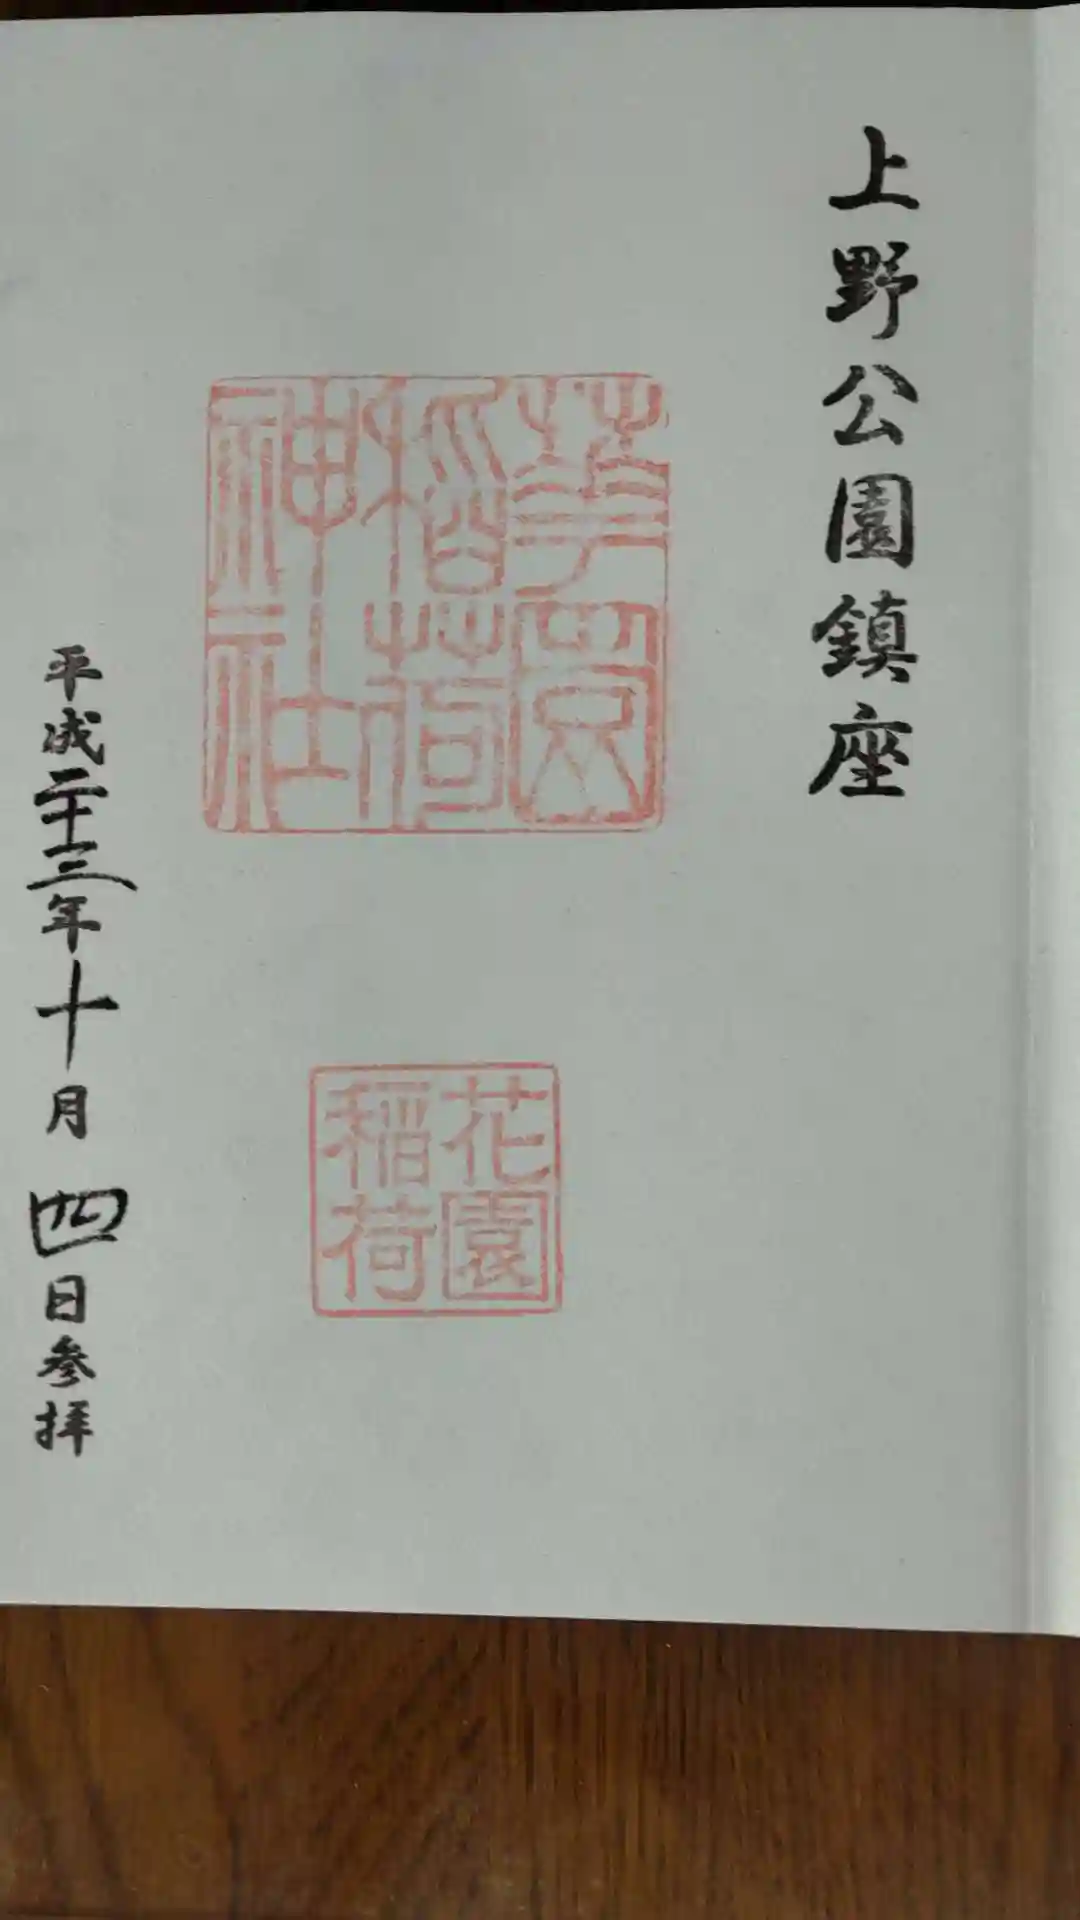 上野公園鎮座
華園
稲荷
神社
花園
稲荷
平成二十三年十月四日参拝